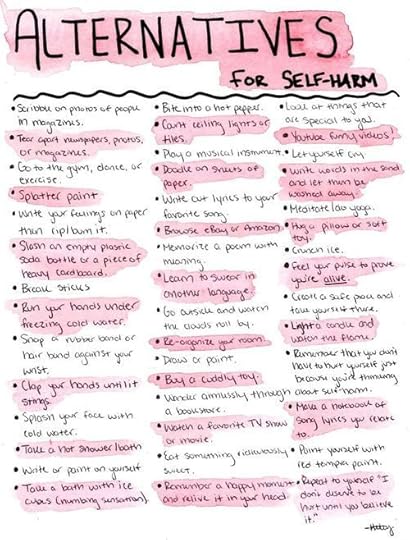 ALTERNATIVES
FOR SELF-HARM
• Scribble on photos of people
in magazines.
• Tear apart newspapers, photos,
or magazines.
• Go to the gym, dance, or
exercise.
• Splatter paint
• Write your feelings on paper
then rip/burn it.
• Slash an empty plastic
soda bottle or a piece of
heavy cardboard.
• Break sticks
• Run your hands under
freezing cold water.
• Snap a rubber band or
hair band against your
wrist.
• Clap your hands until it
stings.
• Splash your face with
cold water.
• Take a hot shower/bath
• Write or paint on yourself
• Take a bath with ice
cubes (numbing sensation).
• Bite into a hot pepper.
• Count ceiling lights or
tiles.
• Play a musical instrument.
• Doodle on sheets of
paper.
• Write out lyrics to your
favorite song.
• Browse eBay or Amazon.
• Memorize a poem with
meaning.
• Learn to swear in
another language.
• Go outside and watch
the clouds roll by.
• Re-organize your room.
• Draw or paint.
• Buy a cuddly toy.
• Wander aimlessly through
a bookstore.
• Watch a favorite TV show
or movie.
• Eat something ridiculously
sweet.
• Remember a happy moment
and relive it in your head.
• Look at things that
are special to you.
• Youtube funny videos!
• Let yourself cry.
• Write words in the sand
and let them be
washed away.
• Meditate/do yoga.
• Hug a pillow or soft
toy.
• Crunch ice.
• Feel your pulse to prove
you're alive.
• Create a safe place and
take yourself there.
• Light a candle and
watch the flame.
• Remember that you don't
have to hurt yourself just
because you're thinking
about self-harm.
• Make a notebook of
song lyrics you relate
to.
• Paint yourself with
red tempra paint.
• Repeat to yourself "I
don't deserve to be
hurt until you believe
it."